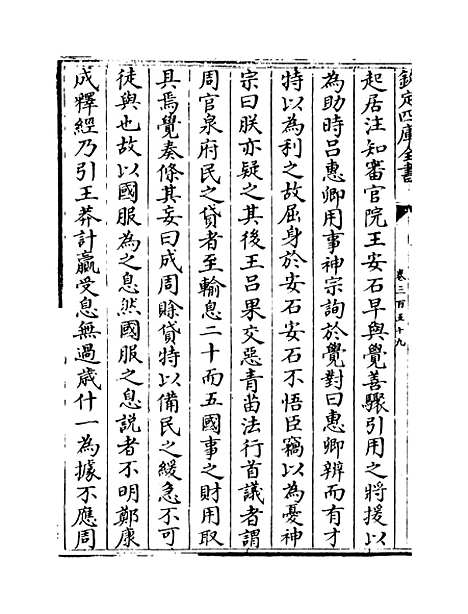 欽定四庫全書
卷三百五十九
起居注知審官院王安石早與覺善驟引用之將援以
為助時吕惠卿用事神宗詢於覺對曰惠卿辨而有才
特以為利之故屈身於安石安石不悟臣竊以為憂神
宗曰朕亦疑之其後王吕果交惡青苗法行首議者謂
周官泉府民之貸者至輸息二十而五國事之財用取
具焉覺奏條其妄曰成周賒貸特以備民之緩急不可
徒與也故以國服為之息然國服之息説者不明鄭康
成釋經乃引王莽計贏受息無過歳什一為據不應周